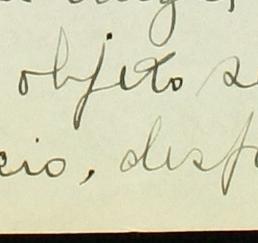 objeto s
cio, desp